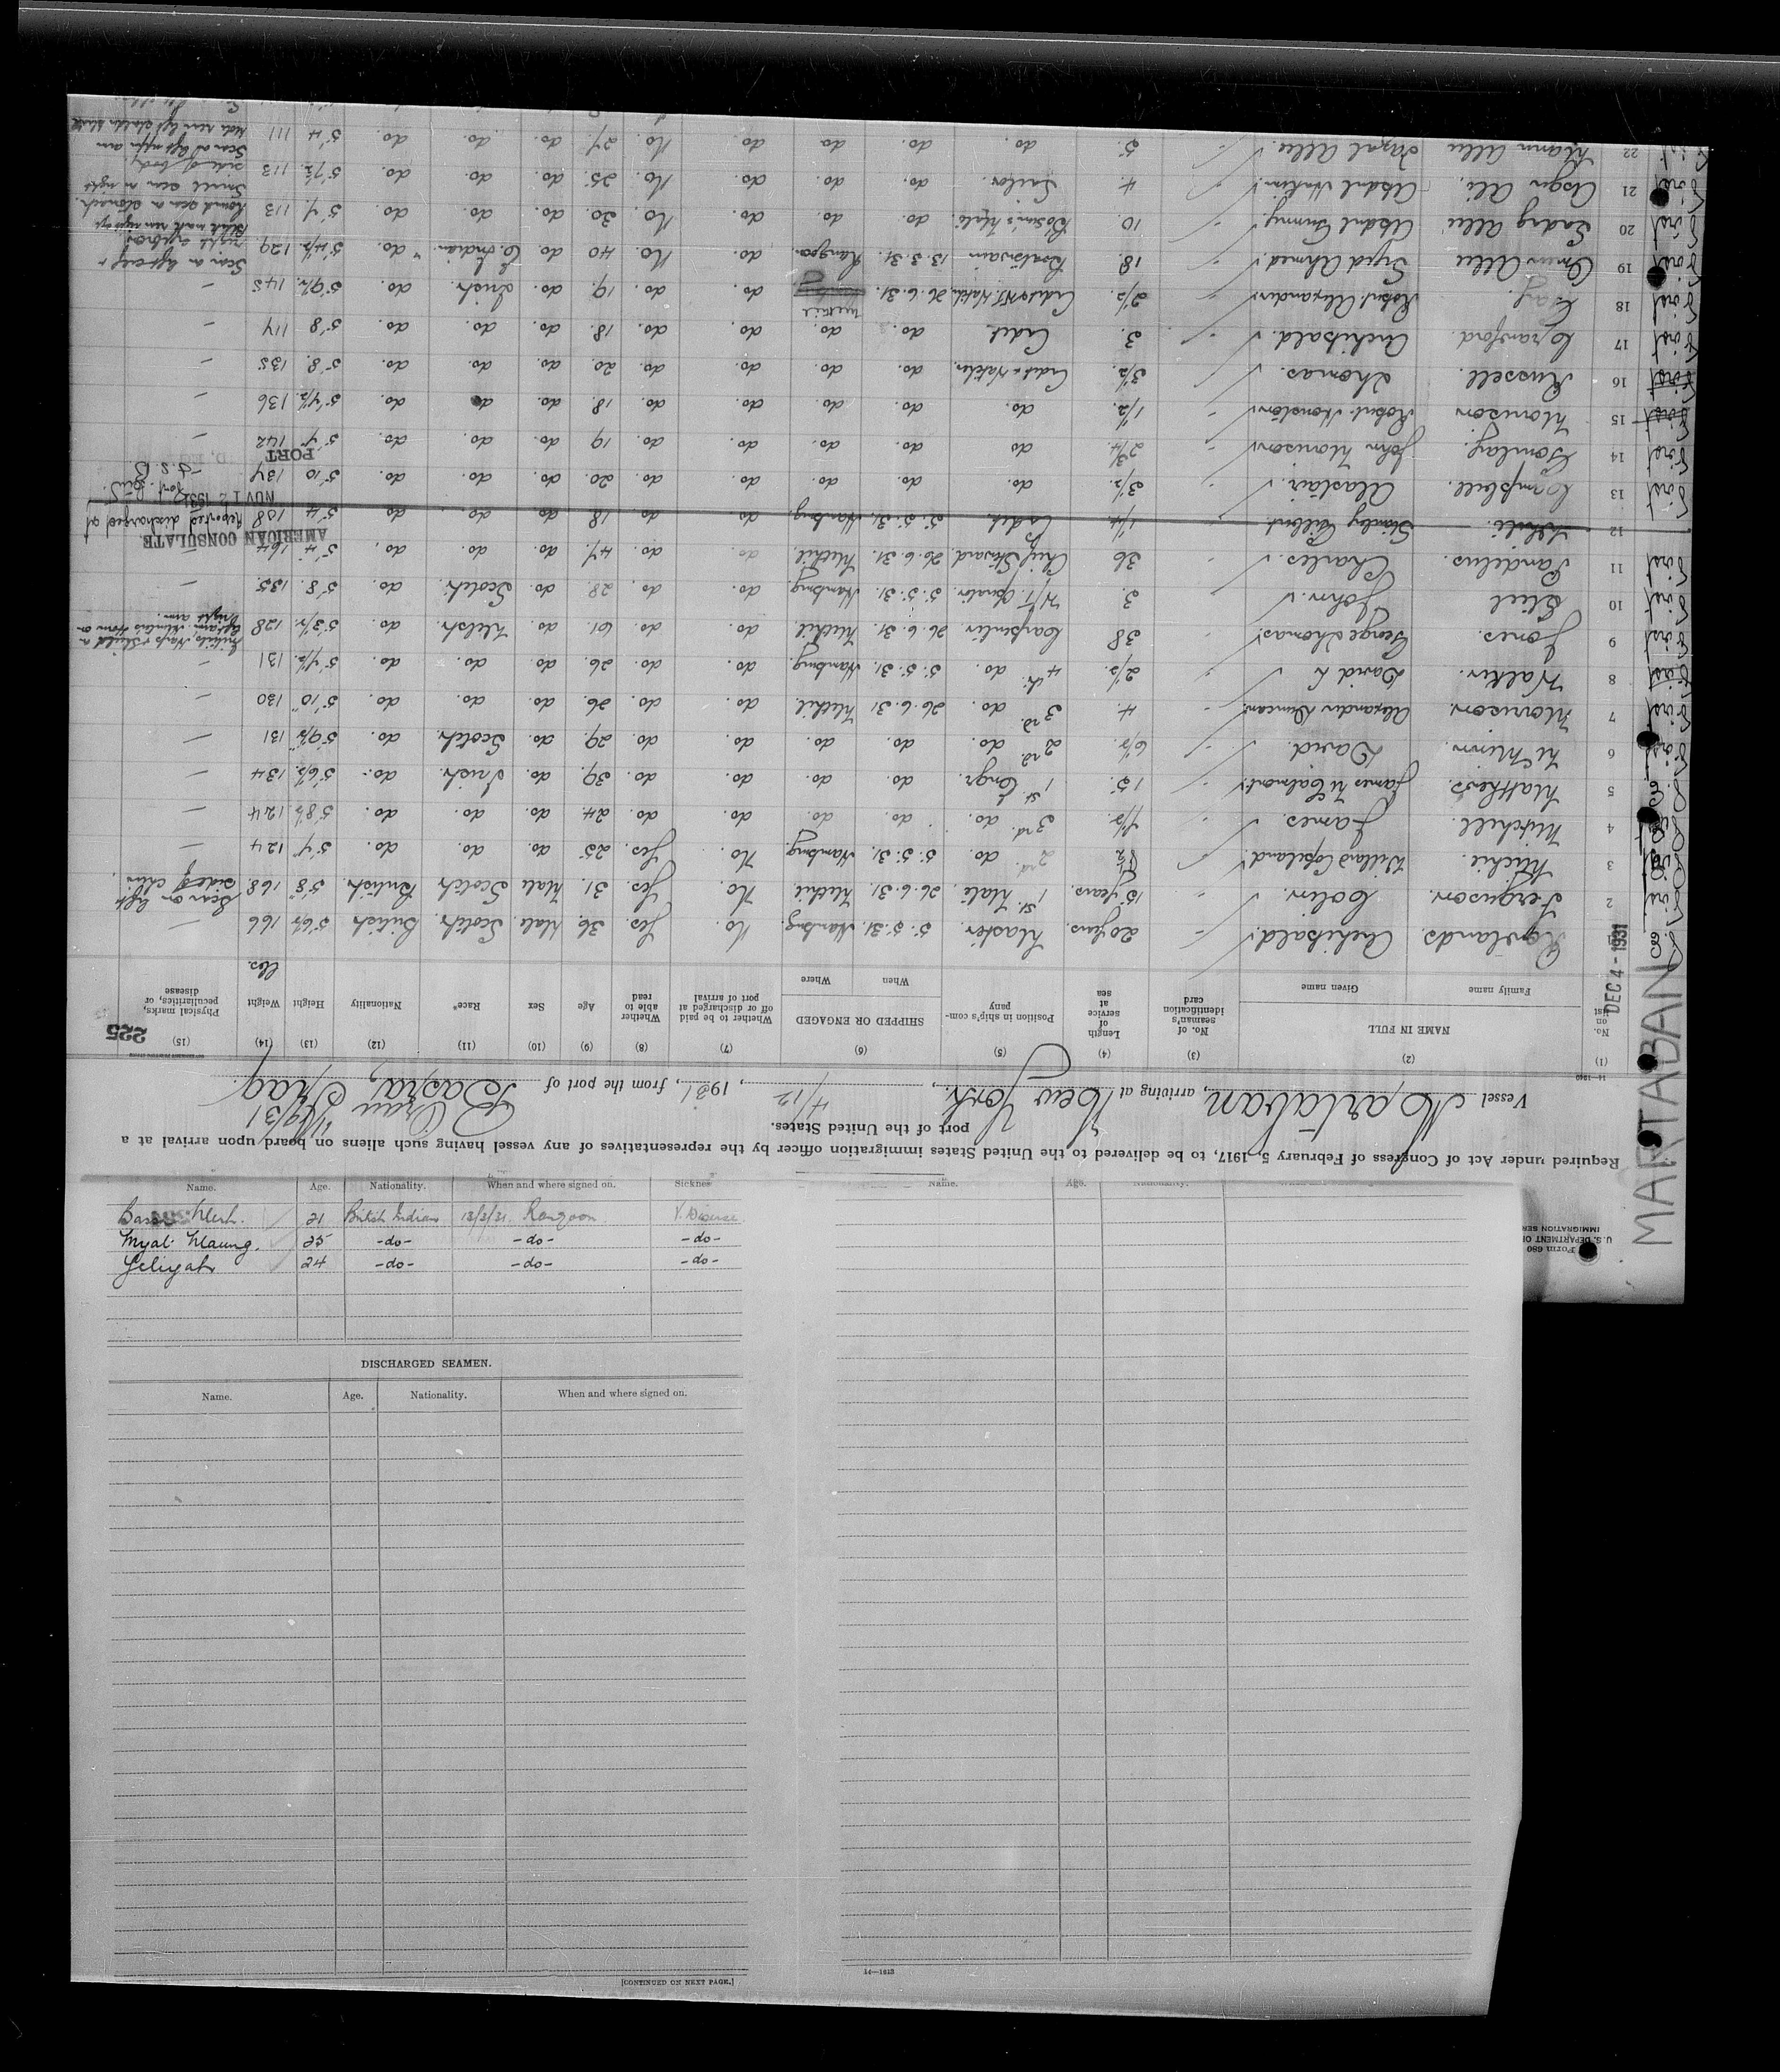 MARTABAN
DEC 4 - 1931
Form 680
U.S. DEPARTMENT OF
IMMIGRATION SER
Required under Act of Congress of February 5, 1917, to be delivered to the United States immigration officer by the representatives of any vessel having such aliens on board upon arrival at a
port of the United States.
Vessel Martaban, arriving at New York, 4/12, 1931, from the port of Basra, Iraq.
225
(1) (2) (3) (4) (5) (6) (7) (8) (9) (10) (11) (12) (13) (14) (15)
No. on list NAME IN FULL Family name Given name No. of seaman's identification card Length of service at sea Position in ship's company SHIPPED OR ENGAGED When Where Whether to be paid off or discharged at port of arrival Whether able to read Age Sex Race* Nationality Height Weight lbs. Physical marks, peculiarities, or disease
1 Rowlands. Archibald. 20 years. Master. 5.5.31. Hamburg. No Yes 36 Male. Scotch. British. 5'6½ 166 —
2 Ferguson. Colin. 15 years. 1st Mate. 26.6.31. Methil No. Yes 31. Male Scotch British. 5'8" 168. Scar on left side of chin.
3 Michie. William Copeland. 8½ 2nd do. 5.5.31. Hamburg. No. Yes. 25. do. do. do. 5'7 124 —
4 Mitchell. James. 7½. 3rd do. do. do. do. do. 24 do. do. do. 5'8½ 124 —
5 Matthews. James McCalmont. 15. 1st Engr. do. do. do. do. 39. do. Irish. do. 5'6½. 134 —
6 McMinn. David. 6½. 2nd do. do. do. do. do. 29. do. Scotch. do. 5'9½ 131 —
7 Morrison. Alexander Duncan. 4. 3rd do. 26.6.31 Methil do. do. 26 do. do. do. 5'10" 130 —
8 Walker. David L 2½. 4th do. 5.5.31. Hamburg. do. do. 26. do. do. do. 5'7½ 131 —
9 Jones. George Thomas. 38 Carpenter 26.6.31. Methil. do. do. 61 do. Welsh. do. 5'3½ 128
10 Steel John. 3. W/T. Operator. 5.5.31. Hamburg do. do. 28 do. Scotch. do. 5'8. 135 —
11 Pandelus. Charles. 36 Chief Steward. 26.6.31. Methil. do. do. 47. do. do. do. 5'4 164 —
12 Stanley Gilbert. 1¼ Cadet 5.5.31. Hamburg. do do. 18 do. do. do 5'4 108 Reported discharged at Port Said.
AMERICAN CONSULATE
NOV 12 1931
PORT SAID, EGYPT
13 Campbell. Alastair. 3½. do. do. do. do. do. 20. do. do. do. 5'10 137
14 Gourlay. John Morrison. 2¾. do do. do. do. do. 19 do. do. do. 5'7. 142 —
15 Morrison Robert Houston. 1½. do. do. do. do. do. 18 do. do do. 5'7½. 136 —
16 Russell. Thomas. 3½. do. do. do. do. 20. do. do. do. 5'8. 135 —
17 Crawford Archibald. 3. Cadet do. do. do. do. 18. do. do. do. 5'8 117 —
18 Gay. Robert Alexander. 2½. 26.6.31. do. do. 19. do. Irish. do. 5'9½. 145 —
19 Ameer Allee Syed Ahmed. 18. 13.3.31. Rangoon. do. No 40 do. E. Indian. do. 5'4½ 129 Scar on left calf + right eyebrow
20 Sadeg Allee Abdul Gunny. 10. Bosun's Mate. do. do do. No. 30 do. do. do. 5'7. 113
21 Asgur Ali. Abdul Hakim. 4 Sailor. do. do. do. No 25. do. do. do. 5'7½. 113 Small scar on right side of body.
22 Mann Allee Fazal Allee 5. do. do. do do. No. 27 do. do. do. 5'4 111 Scar on left upper arm
Name. Age. Nationality. When and where signed on. Sickness
21 British Indian 13/3/31. Rangoon V. Disease
Myat Maung. 25 -do- -do- -do-
24 -do- -do- -do-
DISCHARGED SEAMEN.
Name. Age. Nationality. When and where signed on.
[CONTINUED ON NEXT PAGE.]
14—1613